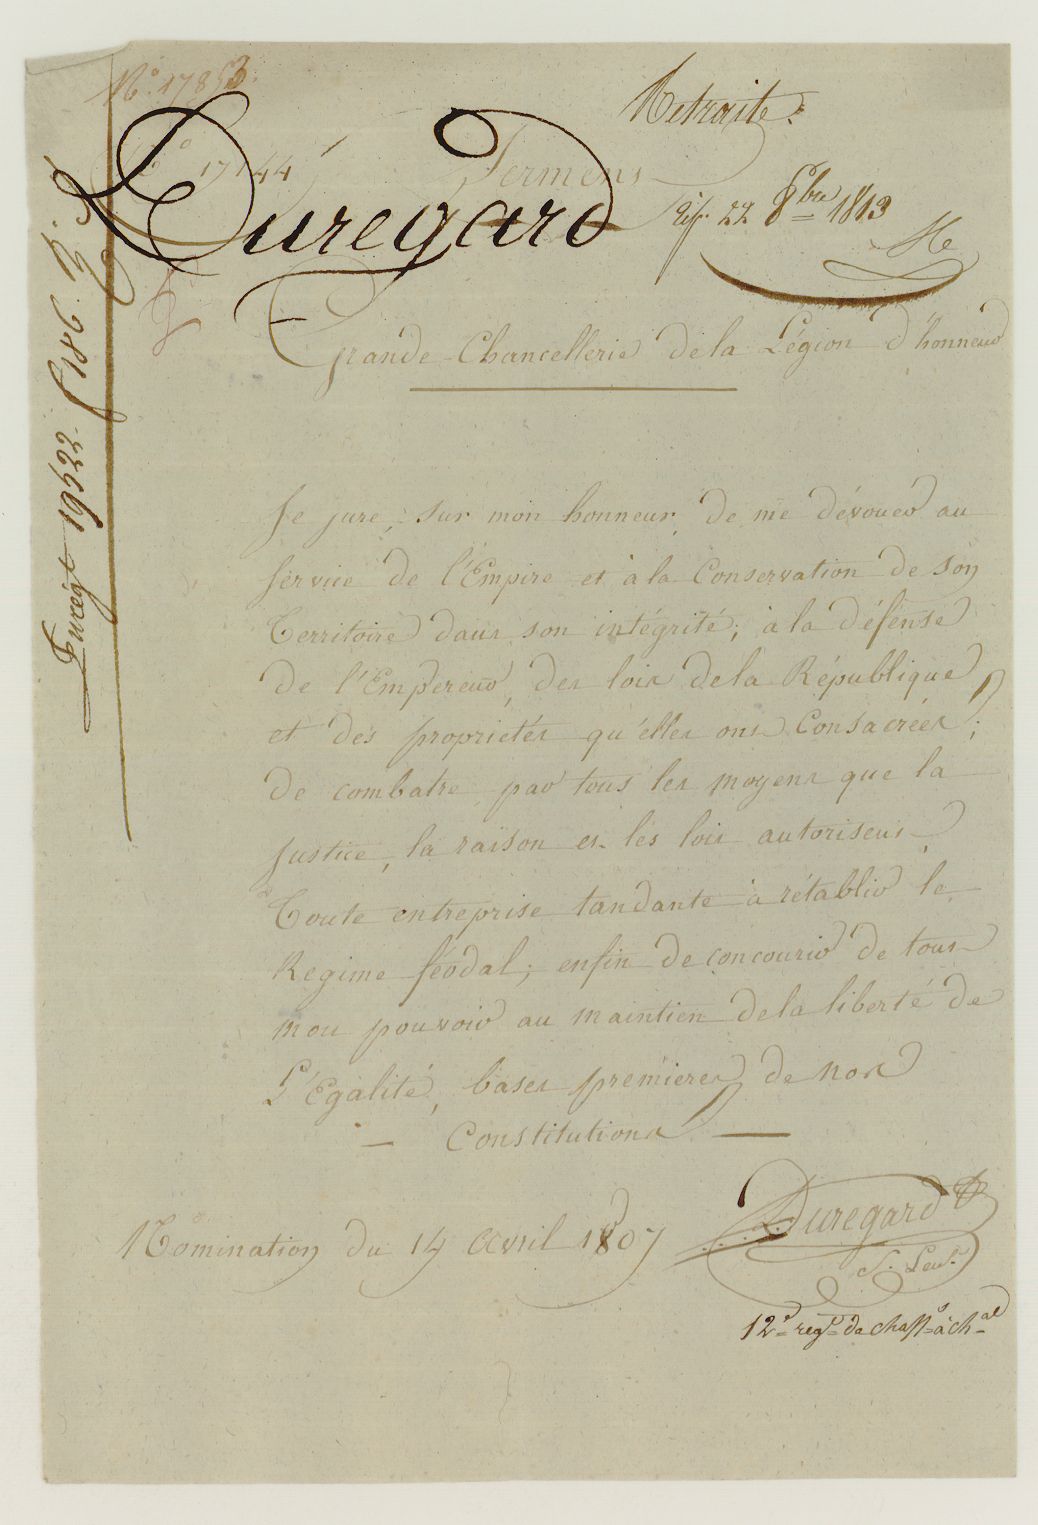 N.º 17853.
Retraite.
N.º 17144
Serment
Duregard
22 8bre 1813
Grande Chancellerie de la Légion d'honneur
Enregt 19522. f. 186. R. 5
Je jure, sur mon honneur, de me dévouer au
service de l'Empire et à la Conservation de son
Territoire dans son intégrité; à la défense
de l'Empereur, des loix de la République
et des proprietés qu'elles ont Consacrées;
de combatre, par tous les moyens que la
justice, la raison et les loix autorisent,
Toute entreprise tandante à rétablir le
Regime féodal; enfin de concourir de tout
mon pouvoir au maintien de la liberté de
L'Egalité, bases premieres de nos
— Constitutions. —
Nomination du 14 avril 1807
Duregard
S. Leut.
12e regt de chassrs à chal